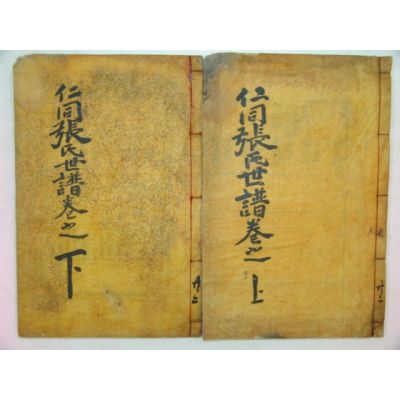 仁同張氏世譜卷之一
上
仁同張氏世譜卷之一
下